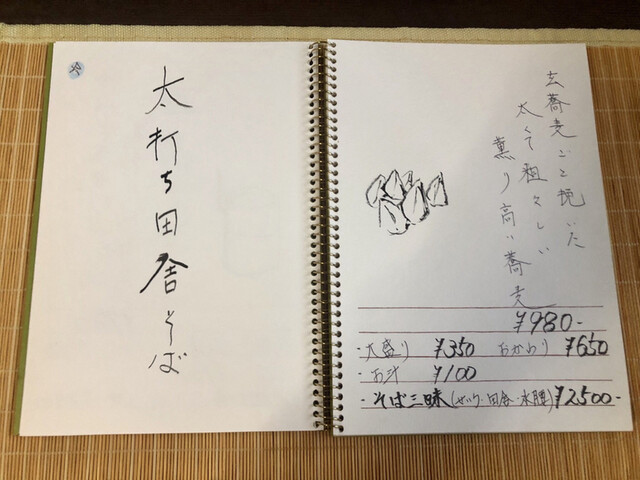 冷
太打ち田舎そば
玄蕎麦ごと挽いた
太くて粗々しい
薫り高い蕎麦
¥980-
・大盛り ¥350 おかわり ¥650
・お汁 ¥100
・そば三昧(せいろ・田舎・水腰)¥2,500-